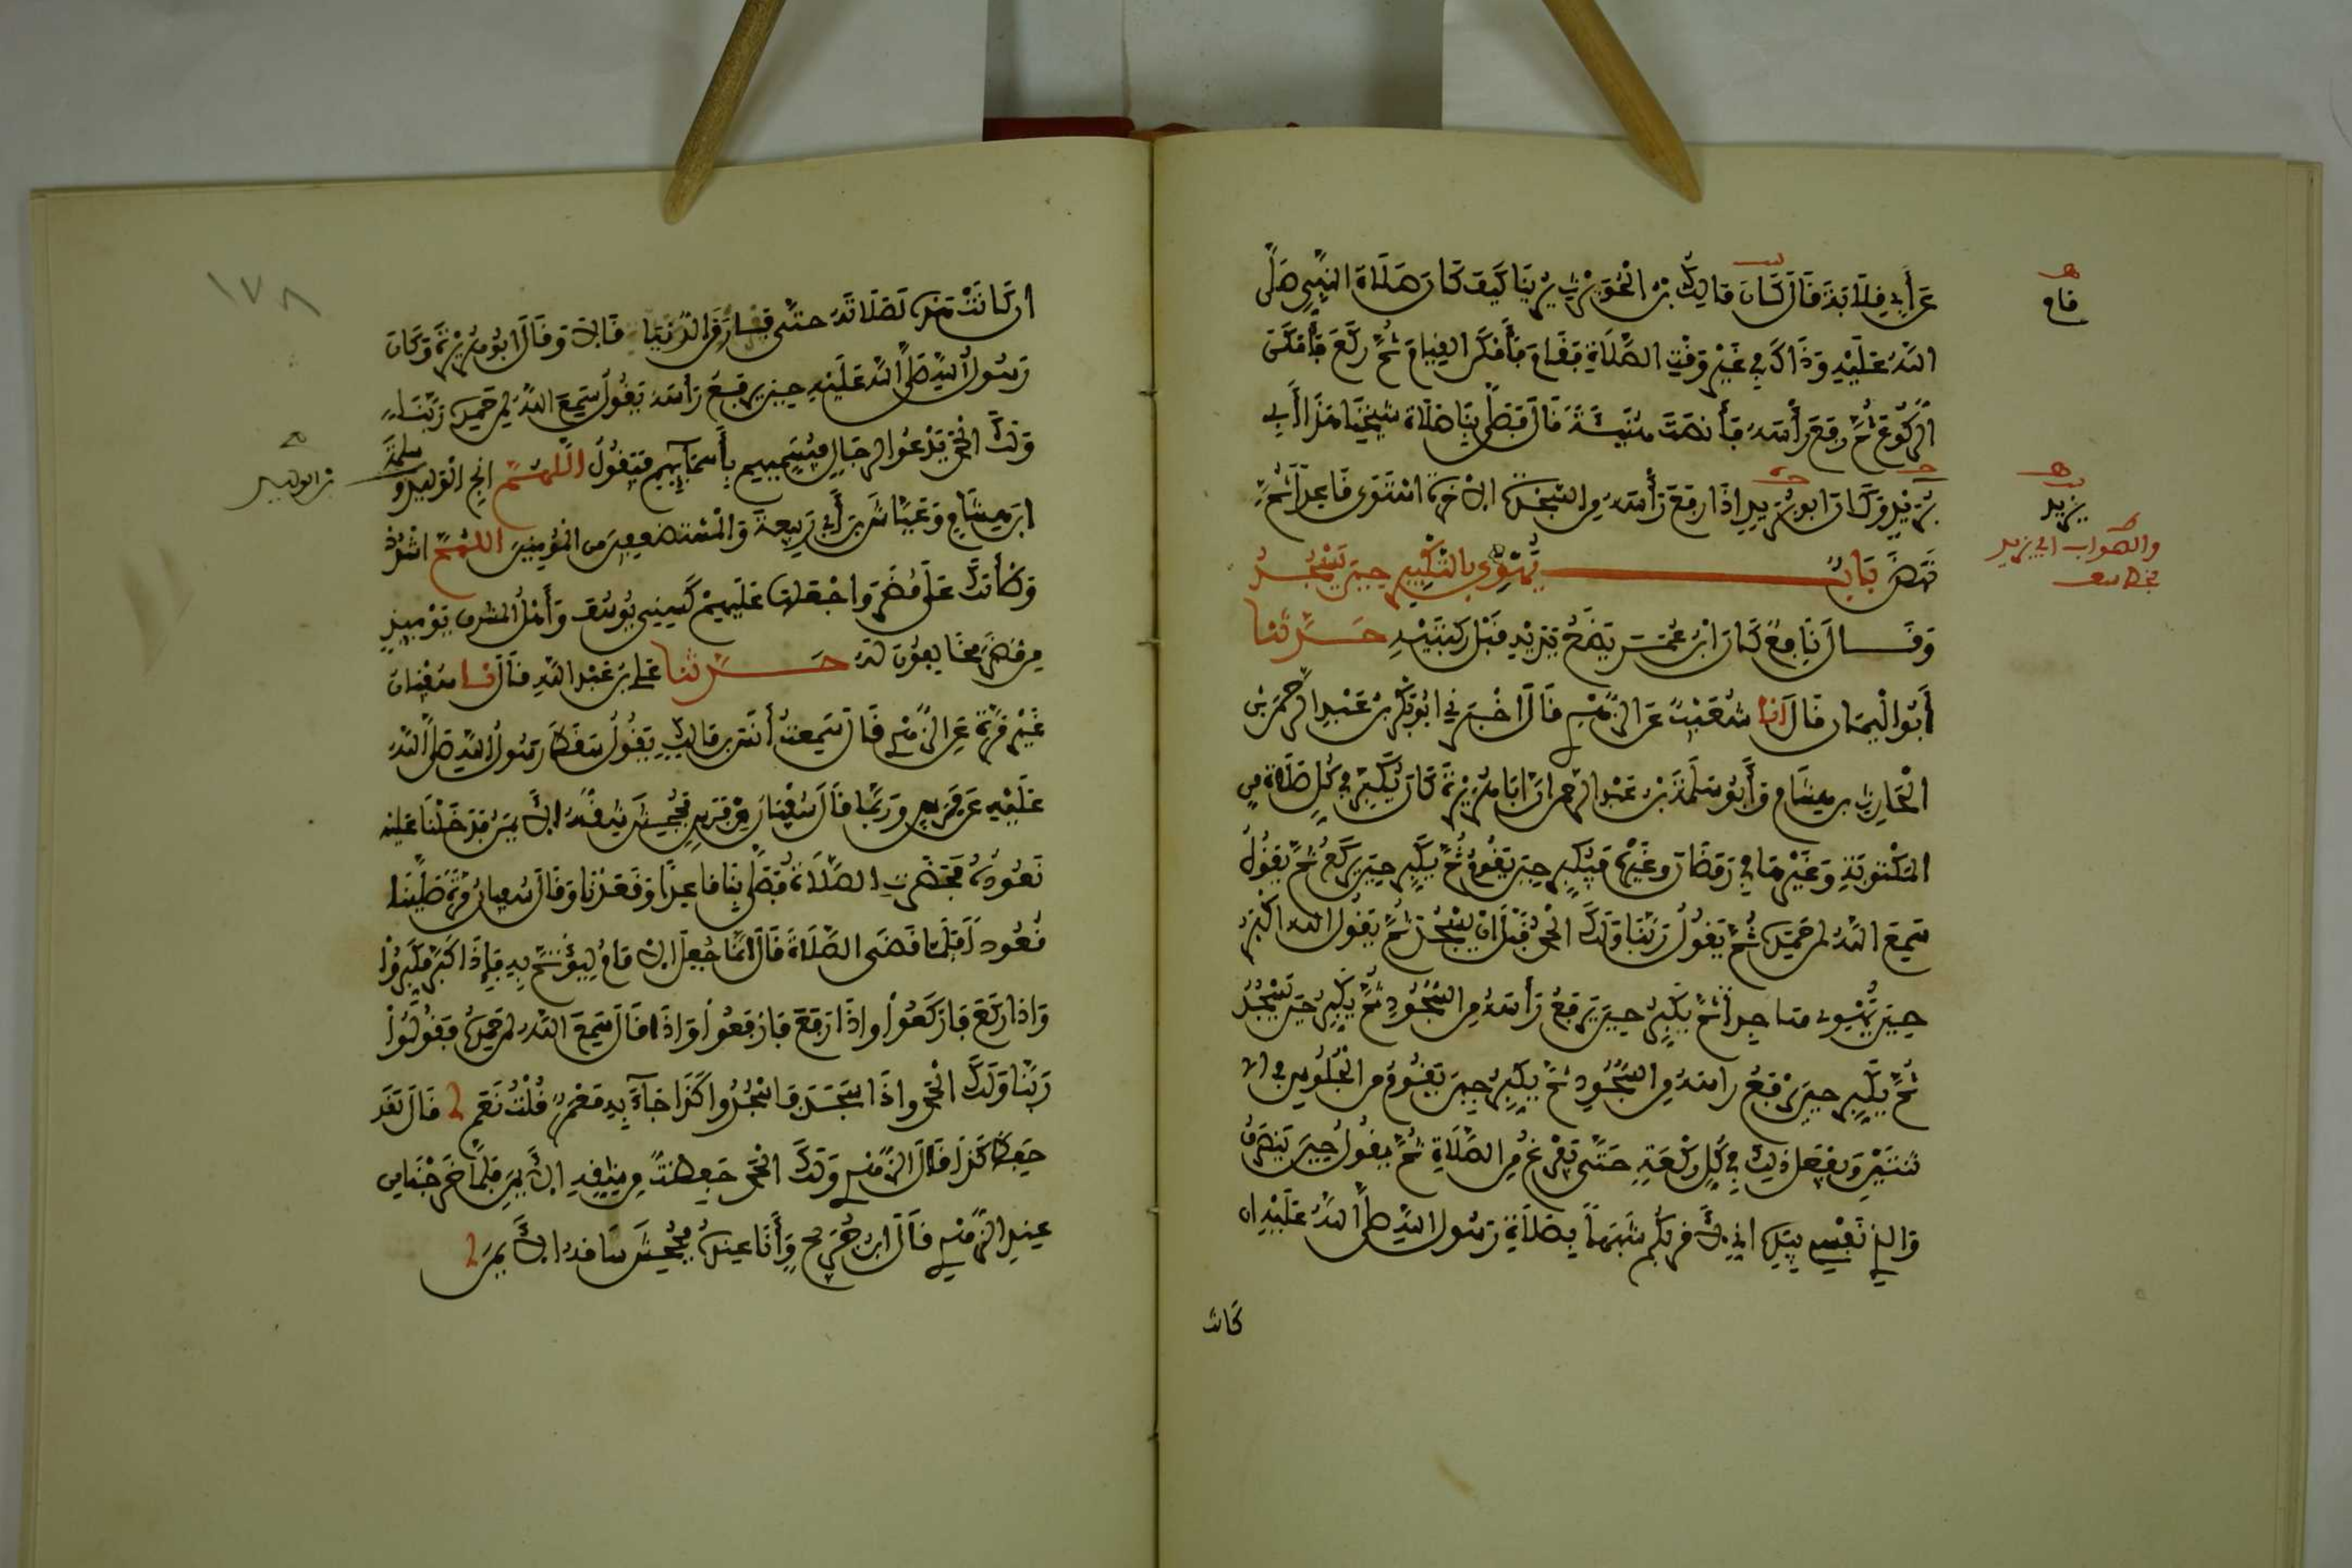 عَنْ أَبِي قِلَابَةَ قَالَ كَانَ مَالِكُ بْنُ الْحُوَيْرِثِ يُرِينَا كَيْفَ كَانَ صَلَاةُ النَّبِيِّ صَلَّى
اللَّهُ عَلَيْهِ وَذَاكَ فِي غَيْرِ وَقْتِ الصَّلَاةِ فَقَامَ فَأَمْكَنَ الْقِيَامَ ثُمَّ رَكَعَ فَأَمْكَنَ
الرُّكُوعَ ثُمَّ رَفَعَ رَأْسَهُ فَأَنْصَتَ هُنَيَّةً قَالَ فَصَلَّى بِنَا صَلَاةَ شَيْخِنَا هَذَا أَبِي
بُرَيْدٍ وَكَانَ أَبُو بُرَيْدٍ إِذَا رَفَعَ رَأْسَهُ مِنَ السَّجْدَةِ الْآخِرَةِ اسْتَوَى قَاعِدًا ثُمَّ
نَهَضَ بَابُ يَهْوِي بِالتَّكْبِيرِ حِينَ يَسْجُدُ
وَقَالَ نَافِعٌ كَانَ ابْنُ عُمَرَ يَضَعُ يَدَيْهِ قَبْلَ رُكْبَتَيْهِ حَدَّثَنَا
أَبُو الْيَمَانِ قَالَ أنا شُعَيْبٌ عَنِ الزُّهْرِيِّ قَالَ أَخْبَرَنِي أَبُو بَكْرِ بْنُ عَبْدِ الرَّحْمَنِ بْنِ
الْحَارِثِ بن هِشَامٍ وَأَبُو سَلَمَةَ بْنُ عَبْدِ الرَّحْمَنِ أَنَّ أَبَا هُرَيْرَةَ كَانَ يُكَبِّرُ فِي كُلِّ صَلَاةٍ مِنَ
الْمَكْتُوبَةِ وَغَيْرِهَا فِي رَمَضَانَ وَغَيْرِهِ فَيُكَبِّرُ حِينَ يَقُومُ ثُمَّ يُكَبِّرُ حِينَ يَرْكَعُ ثُمَّ يَقُولُ
سَمِعَ اللَّهُ لِمَنْ حَمِدَهُ ثُمَّ يَقُولُ رَبَّنَا وَلَكَ الْحَمْدُ قَبْلَ أَنْ يَسْجُدَ ثُمَّ يَقُولُ اللَّهُ أَكْبَرُ
حِينَ يَهْوِي سَاجِدًا ثُمَّ يُكَبِّرُ حِينَ يَرْفَعُ رَأْسَهُ مِنَ السُّجُودِ ثُمَّ يُكَبِّرُ حِينَ يَسْجُدُ
ثُمَّ يُكَبِّرُ حِينَ يَرْفَعُ رَأْسَهُ مِنَ السُّجُودِ ثُمَّ يُكَبِّرُ حِينَ يَقُومُ مِنَ الْجُلُوسِ فِي الا
ثْنَتَيْنِ وَيَفْعَلُ ذَلِكَ فِي كُلِّ رَكْعَةٍ حَتَّى يَفْرُغَ مِنَ الصَّلَاةِ ثُمَّ يَقُولُ حِينَ يَنْصَرِفُ
وَالَّذِي نَفْسِي بِيَدِهِ إِنِّي لَأَقْرَبُكُمْ شَبَهًا بِصَلَاةِ رَسُولِ اللَّهِ صَلَّى اللَّهُ عَلَيْهِ إِن
كَانَت
قام
يزيد
والصواب ابي بريد
١٧٨
إِنْ كَانَتْ هَذِهِ لَصَلَاتَهُ حَتَّى فَارَقَ الدُّنْيَا قَالَا وَقَالَ أَبُو هُرَيْرَةَ وَكَانَ
رَسُولُ اللَّهِ صَلَّى اللَّهُ عَلَيْهِ حِينَ يَرْفَعُ رَأْسَهُ يَقُولُ سَمِعَ اللَّهُ لِمَنْ حَمِدَهُ رَبَّنَا
وَلَكَ الْحَمْدُ يَدْعُو لِرِجَالٍ فَيُسَمِّيهِمْ بِأَسْمَائِهِمْ فَيَقُولُ اللَّهُمَّ أَنْجِ الْوَلِيدَ وَسَلَمَةَ
ابْنَ هِشَامٍ وَعَيَّاشَ بْنَ أَبِي رَبِيعَةَ وَالْمُسْتَضْعَفِينَ مِنَ الْمُؤْمِنِينَ اللَّهُمَّ اشْدُدْ
وَطْأَتَكَ عَلَى مُضَرَ وَاجْعَلْهَا عَلَيْهِمْ كَسِنِي يُوسُفَ وَأَهْلُ الْمَشْرِقِ يَوْمَئِذٍ
مِنْ مُضَرَ مُخَالِفُونَ لَهُ حَدَّثَنَا عَلِيُّ بْنُ عَبْدِ اللَّهِ قَالَ نا سُفْيَانُ
غَيْرَ مَرَّةٍ عَنِ الزُّهْرِيِّ قَالَ سَمِعْتُ أَنَسَ بْنَ مَالِكٍ يَقُولُ سَقَطَ رَسُولُ اللَّهِ صَلَّى اللَّهُ
عَلَيْهِ عَنْ فَرَسٍ وَرُبَّمَا قَالَ سُفْيَانُ مِنْ فَرَسٍ فَجُحِشَ شِقُّهُ الْأَيْمَنُ فَدَخَلْنَا عَلَيْهِ
نَعُودُهُ فَحَضَرَتِ الصَّلَاةُ فَصَلَّى بِنَا قَاعِدًا وَقَعَدْنَا وَقَالَ سُفْيَانُ مَرَّةً صَلَّيْنَا
قُعُودًا فَلَمَّا قَضَى الصَّلَاةَ قَالَ إِنَّمَا جُعِلَ الْإِمَامُ لِيُؤْتَمَّ بِهِ فَإِذَا كَبَّرَ فَكَبِّرُوا
وَإِذَا رَكَعَ فَارْكَعُوا وَإِذَا رَفَعَ فَارْفَعُوا وَإِذَا قَالَ سَمِعَ اللَّهُ لِمَنْ حَمِدَهُ فَقُولُوا
رَبَّنَا وَلَكَ الْحَمْدُ وَإِذَا سَجَدَ فَاسْجُدُوا كَذَا جَاءَ بِهِ مَعْمَرٌ قُلْتُ نَعَمْ قَالَ لَقَدْ
حَفِظَ كَذَا قَالَ الزُّهْرِيُّ وَلَكَ الْحَمْدُ حَفِظْتُ مِنْ شِقِّهِ الْأَيْمَنِ فَلَمَّا خَرَجْنَا مِن
عِنْدِ الزُّهْرِيِّ قَالَ ابْنُ جُرَيْجٍ وَأَنَا عِنْدَهُ فَجُحِشَ سَاقُهُ الْأَيْمَنُ
بن الوليد